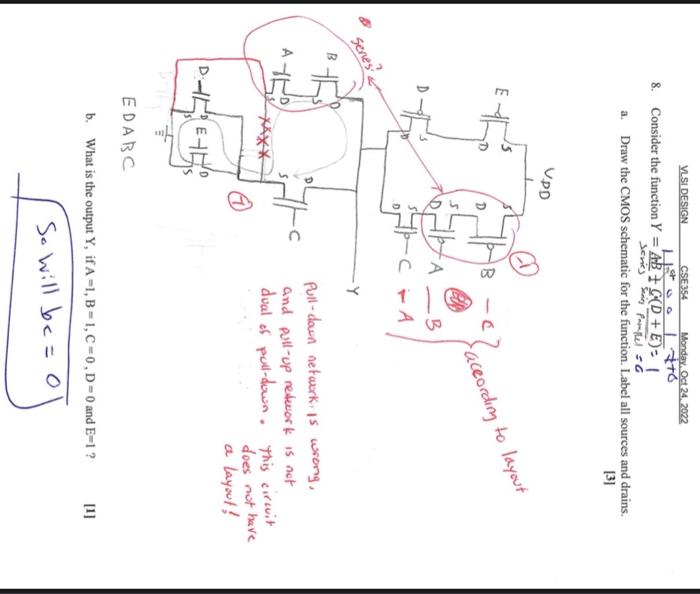 VLSI DESIGN CSE354 Monday, Oct 24, 2022
8. Consider the function Y = AB + C(D + E)
1 1 0 0 1
= 1
series
= 0
a. Draw the CMOS schematic for the function. Label all sources and drains.
[3]
VDD
E S D
S D B
-1
- C
D S D
S D A
- B
S D C
- A
according to layout
series?
Y
B D S
A D S
D S C
xxxx
-1
D D S
E D S
Pull-down network is wrong,
and pull-up network is not
dual of pull-down. This circuit
does not have
a layout!
E D A B C
b. What is the output Y, if A =1, B= 1, C = 0, D= 0 and E=1 ?
[1]
So will be = 0